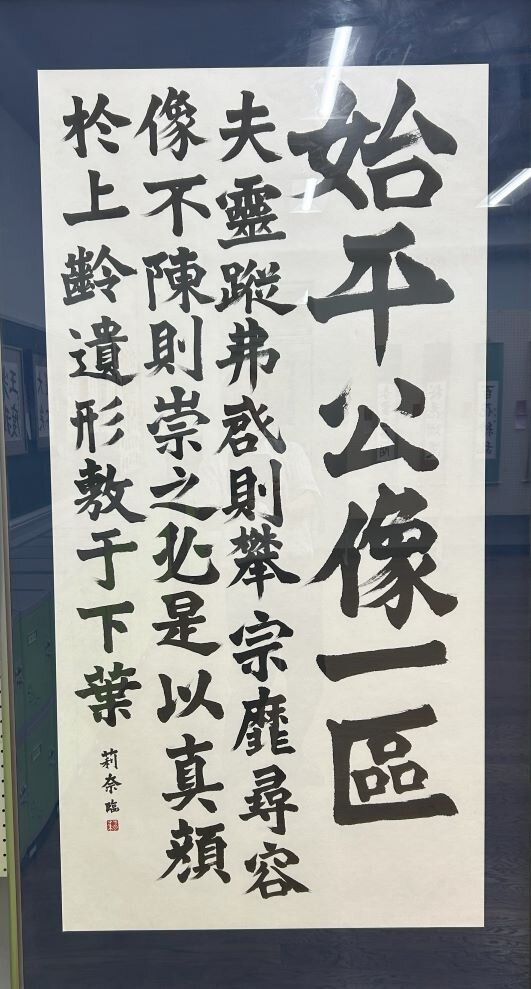 始平公像一區
夫靈蹤弗启則攀宗靡尋容
像不陳則崇之必是以真顔
於上齡遺形敷于下葉
莉奈臨